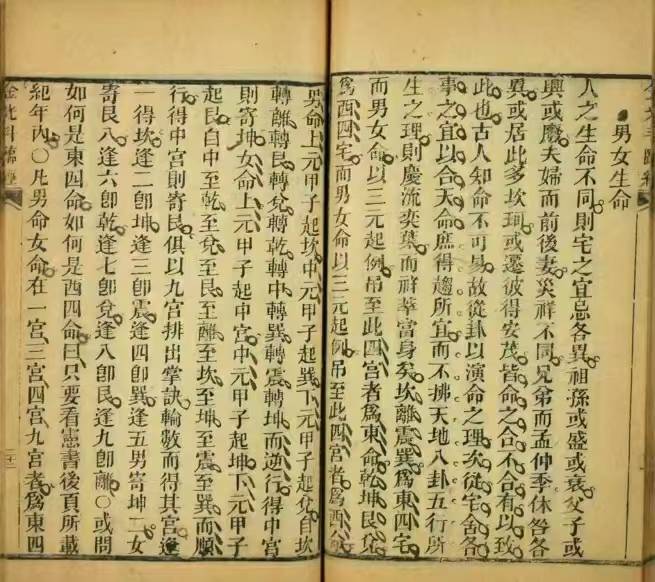 男女生命
人之生命不同則宅之宜忌各異祖孫或盛或衰父子或
興或廢夫婦而前後妻災祥不同兄弟而孟仲季休咎各
異或居此多坎坷或遷彼得安茂皆命之合不合有以致
此也古人知命不可易故從卦以演命之理次從宅舍各
事之宜以合天命庶得趨所宜而不拂天地八卦五行所
生之理則慶流奕葉而祥萃當身矣坎離震巽爲東四宅
而男女命以三元起例吊至此四宮者爲東命乾坤艮兌
爲酉四宅而男女命以三元起例吊至此四宮者爲酉命
男命上元甲子起坎中元甲子起巽下元甲子起兌自坎
轉離轉艮轉兌轉乾轉中轉巽轉震轉坤而逆行得中宮
則寄坤女命上元甲子起中宮中元甲子起坤下元甲子
起艮自中至乾至兌至艮至離至坎至坤至震至巽而順
行得中宮則寄艮俱以九宮排出掌訣輪數而得其宮逢
一得坎逢二卽坤逢三卽震逢四卽巽逢五男寄坤二女
寄艮八逢六卽乾逢七卽兌逢八卽艮逢九卽離○或問
如何是東四命如何是酉四命曰只要看憲書後頁所載
紀年內○凡男命女命在一宮三宮四宮九宮者爲東四